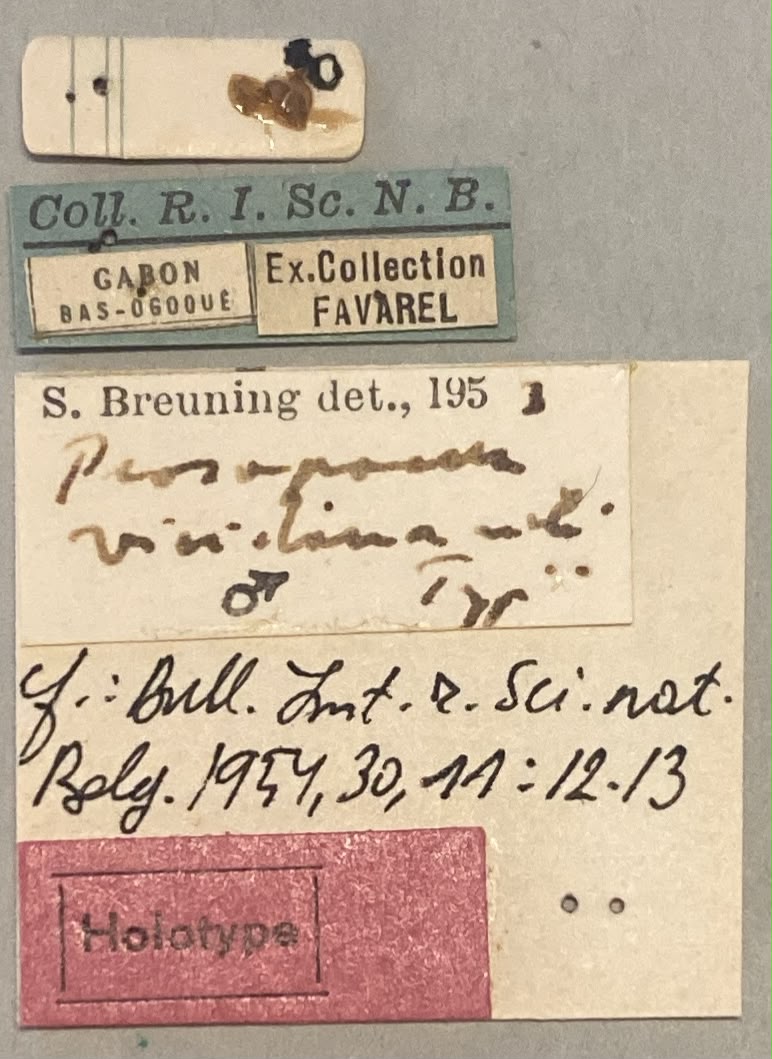 Coll. R. I. Sc. N. B.
GABON
BAS-OGOOUÉ
Ex.Collection
FAVAREL
S. Breuning det., 195
♂ Typ
cf.: Bull. Inst. r. Sci. nat.
Belg. 1954, 30, 11: 12-13
Holotype